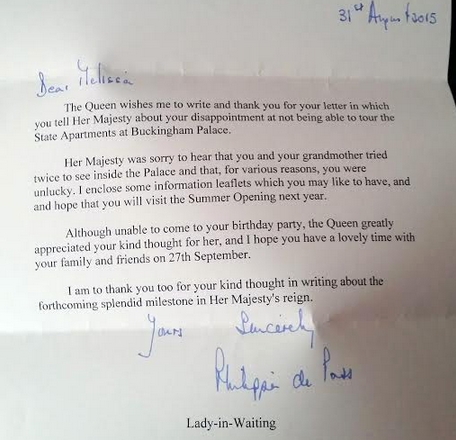 31st August 2015
Dear Melissa
The Queen wishes me to write and thank you for your letter in which
you tell Her Majesty about your disappointment at not being able to tour the
State Apartments at Buckingham Palace.
Her Majesty was sorry to hear that you and your grandmother tried
twice to see inside the Palace and that, for various reasons, you were
unlucky. I enclose some information leaflets which you may like to have, and
and hope that you will visit the Summer Opening next year.
Although unable to come to your birthday party, the Queen greatly
appreciated your kind thought for her, and I hope you have a lovely time with
your family and friends on 27th September.
I am to thank you too for your kind thought in writing about the
forthcoming splendid milestone in Her Majesty's reign.
Yours Sincerely
Philippa de Pass
Lady-in-Waiting